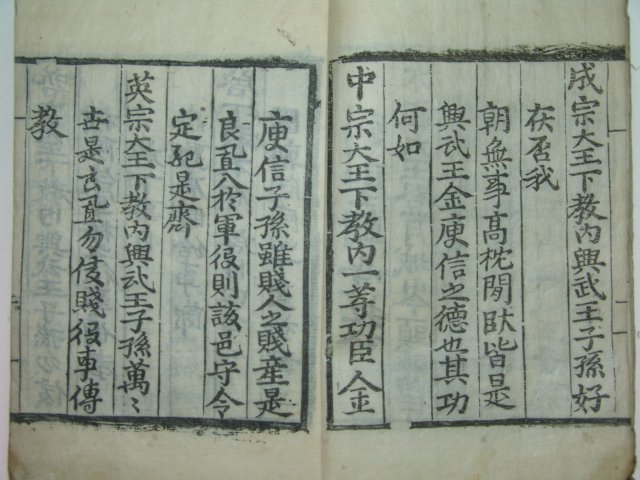 成宗大王下教內興武王子孫好
在否我
朝無事高枕閒臥皆是
興武王金庾信之德也其功
何如
中宗大王下教內一等功臣金
庾信子孫雖賤人之賤産是
良置入於軍役則該邑守令
定犯是齋
英宗大王下教內興武王子孫萬〻
世是良置勿侵賤役事傳
教